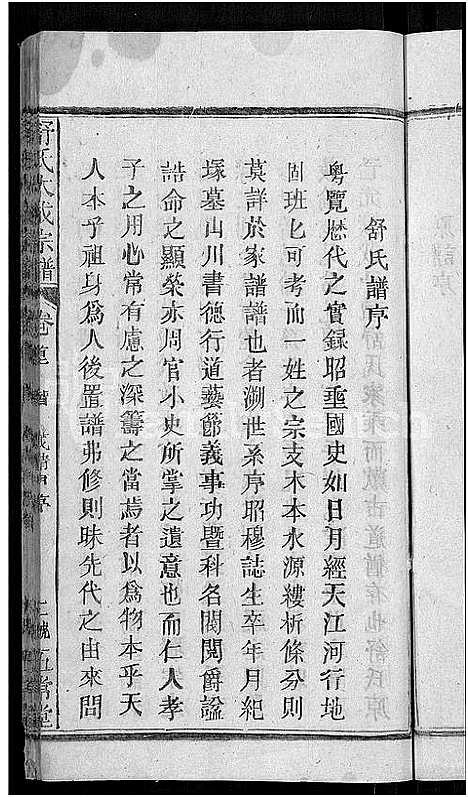 舒氏譜序
粵覽歷代之實録昭垂國史如日月經天江河行地
固班匕可考而一姓之宗支木本水源縷析條分則
莫詳於家譜譜也者溯世系序昭穆誌生卒年月紀
塚墓山川書德行道藝節義事功暨科名閥閱爵諡
誥命之顯榮亦周官小史所掌之遺意也而仁人孝
子之用心常有慮之深籌之當焉者以爲物本乎天
人本乎祖身爲人後置譜弗修則昧先代之由來問
舒氏大成宗譜 卷首